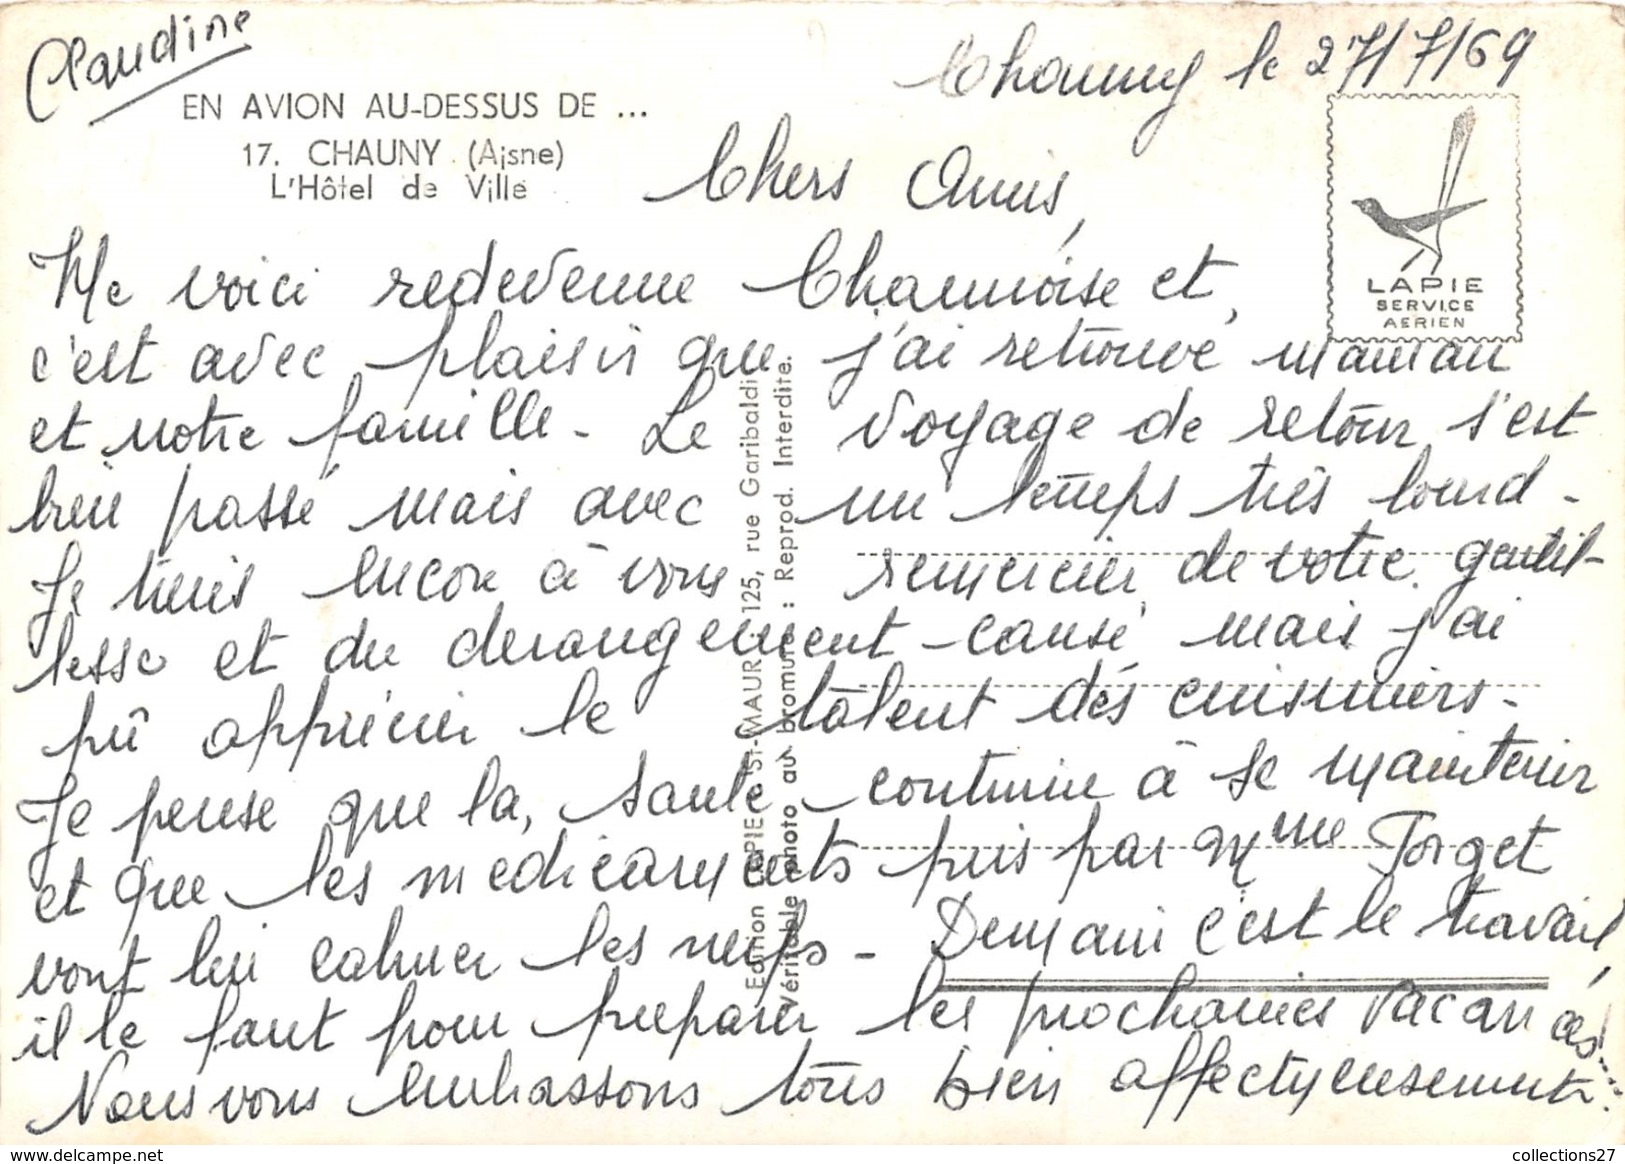 Claudine
Chauny le 27/7/69
EN AVION AU-DESSUS DE ...
17. CHAUNY (Aisne)
L'Hôtel de Ville
LAPIE
SERVICE
AERIEN
Chers Amis,
Me voici redevenue Chaunoise et,
c'est avec plaisir que j'ai retrouvé maman
et notre famille - Le voyage de retour s'est
bien passé mais avec un temps très lourd -
Je tiens encore à vous remercier de votre gentil-
lesse et du derangement causé mais j'ai
pû apprécier le talent des cuisiniers -
Je pense que la santé continue à se maintenir
et que les médicaments pris par Mme Torget
vont lui calmer les nerfs - Demain c'est le travail,
il le faut pour préparer les prochaines vacances!....
Nous vous embrassons tous bien affectueusement.
Edition LAPIE ST-MAUR 125, rue Garibaldi
Véritable photo au bromure : Reprod. Interdite.
delcampe.net
collections27